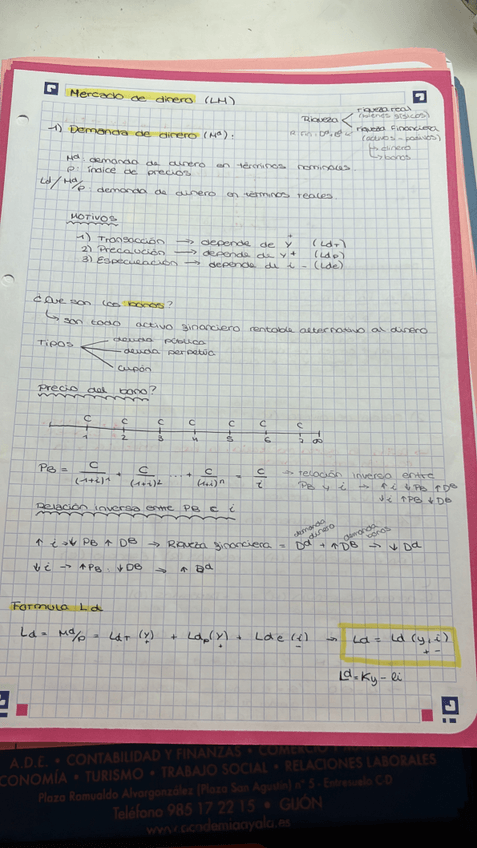 Mercado de dinero (LM)
Riqueza < riqueza real (bienes físicos)
riqueza financiera (activos - pasivos)
↳ dinero
↳ bonos
1) Demanda de dinero (Mᵈ):
Mᵈ: demanda de dinero en términos nominales
P: índice de precios
Ld/Mᵈ/P demanda de dinero en términos reales
MOTIVOS
1) Transacción → depende de y + (LdT)
2) Precaución → depende de y + (Ldp)
3) Especulación → depende de i - (Lde)
¿Qué son los bonos?
↳ son todo activo financiero rentable alternativo al dinero
Tipos
deuda pública
deuda perpetua
cupón
Precio del bono?
C C C C C C C
1 2 3 4 5 6 7 ∞
PB = C/(1+i)¹ + C/(1+i)² ... + C/(1+i)ⁿ = C/i → relación inversa entre
PB y i → ↑i ↓PB ↑DB
↓i ↑PB ↓DB
Relación inversa entre PB e i
demanda dinero demanda bonos
↑ i → ↓ PB ↑ DB → Riqueza financiera = Dd + ↑DB → ↓ Dd
↓i → ↑PB ↓DB → ↑ Dd
Formula Ld
Ld = Mᵈ/P = LdT (y) + Ldp (y) + Lde (i) → Ld = Ld (y, i)
+ + - + -
Lᵈ = Ky - li
A.D.E. • CONTABILIDAD Y FINANZAS • COMERCIO
CONOMÍA • TURISMO • TRABAJO SOCIAL • RELACIONES LABORALES
Plaza Romualdo Alvargonzález (Plaza San Agustín) nº 5 - Entresuelo C D
Teléfono 985 17 22 15 • GIJÓN
www.academiaayala.es